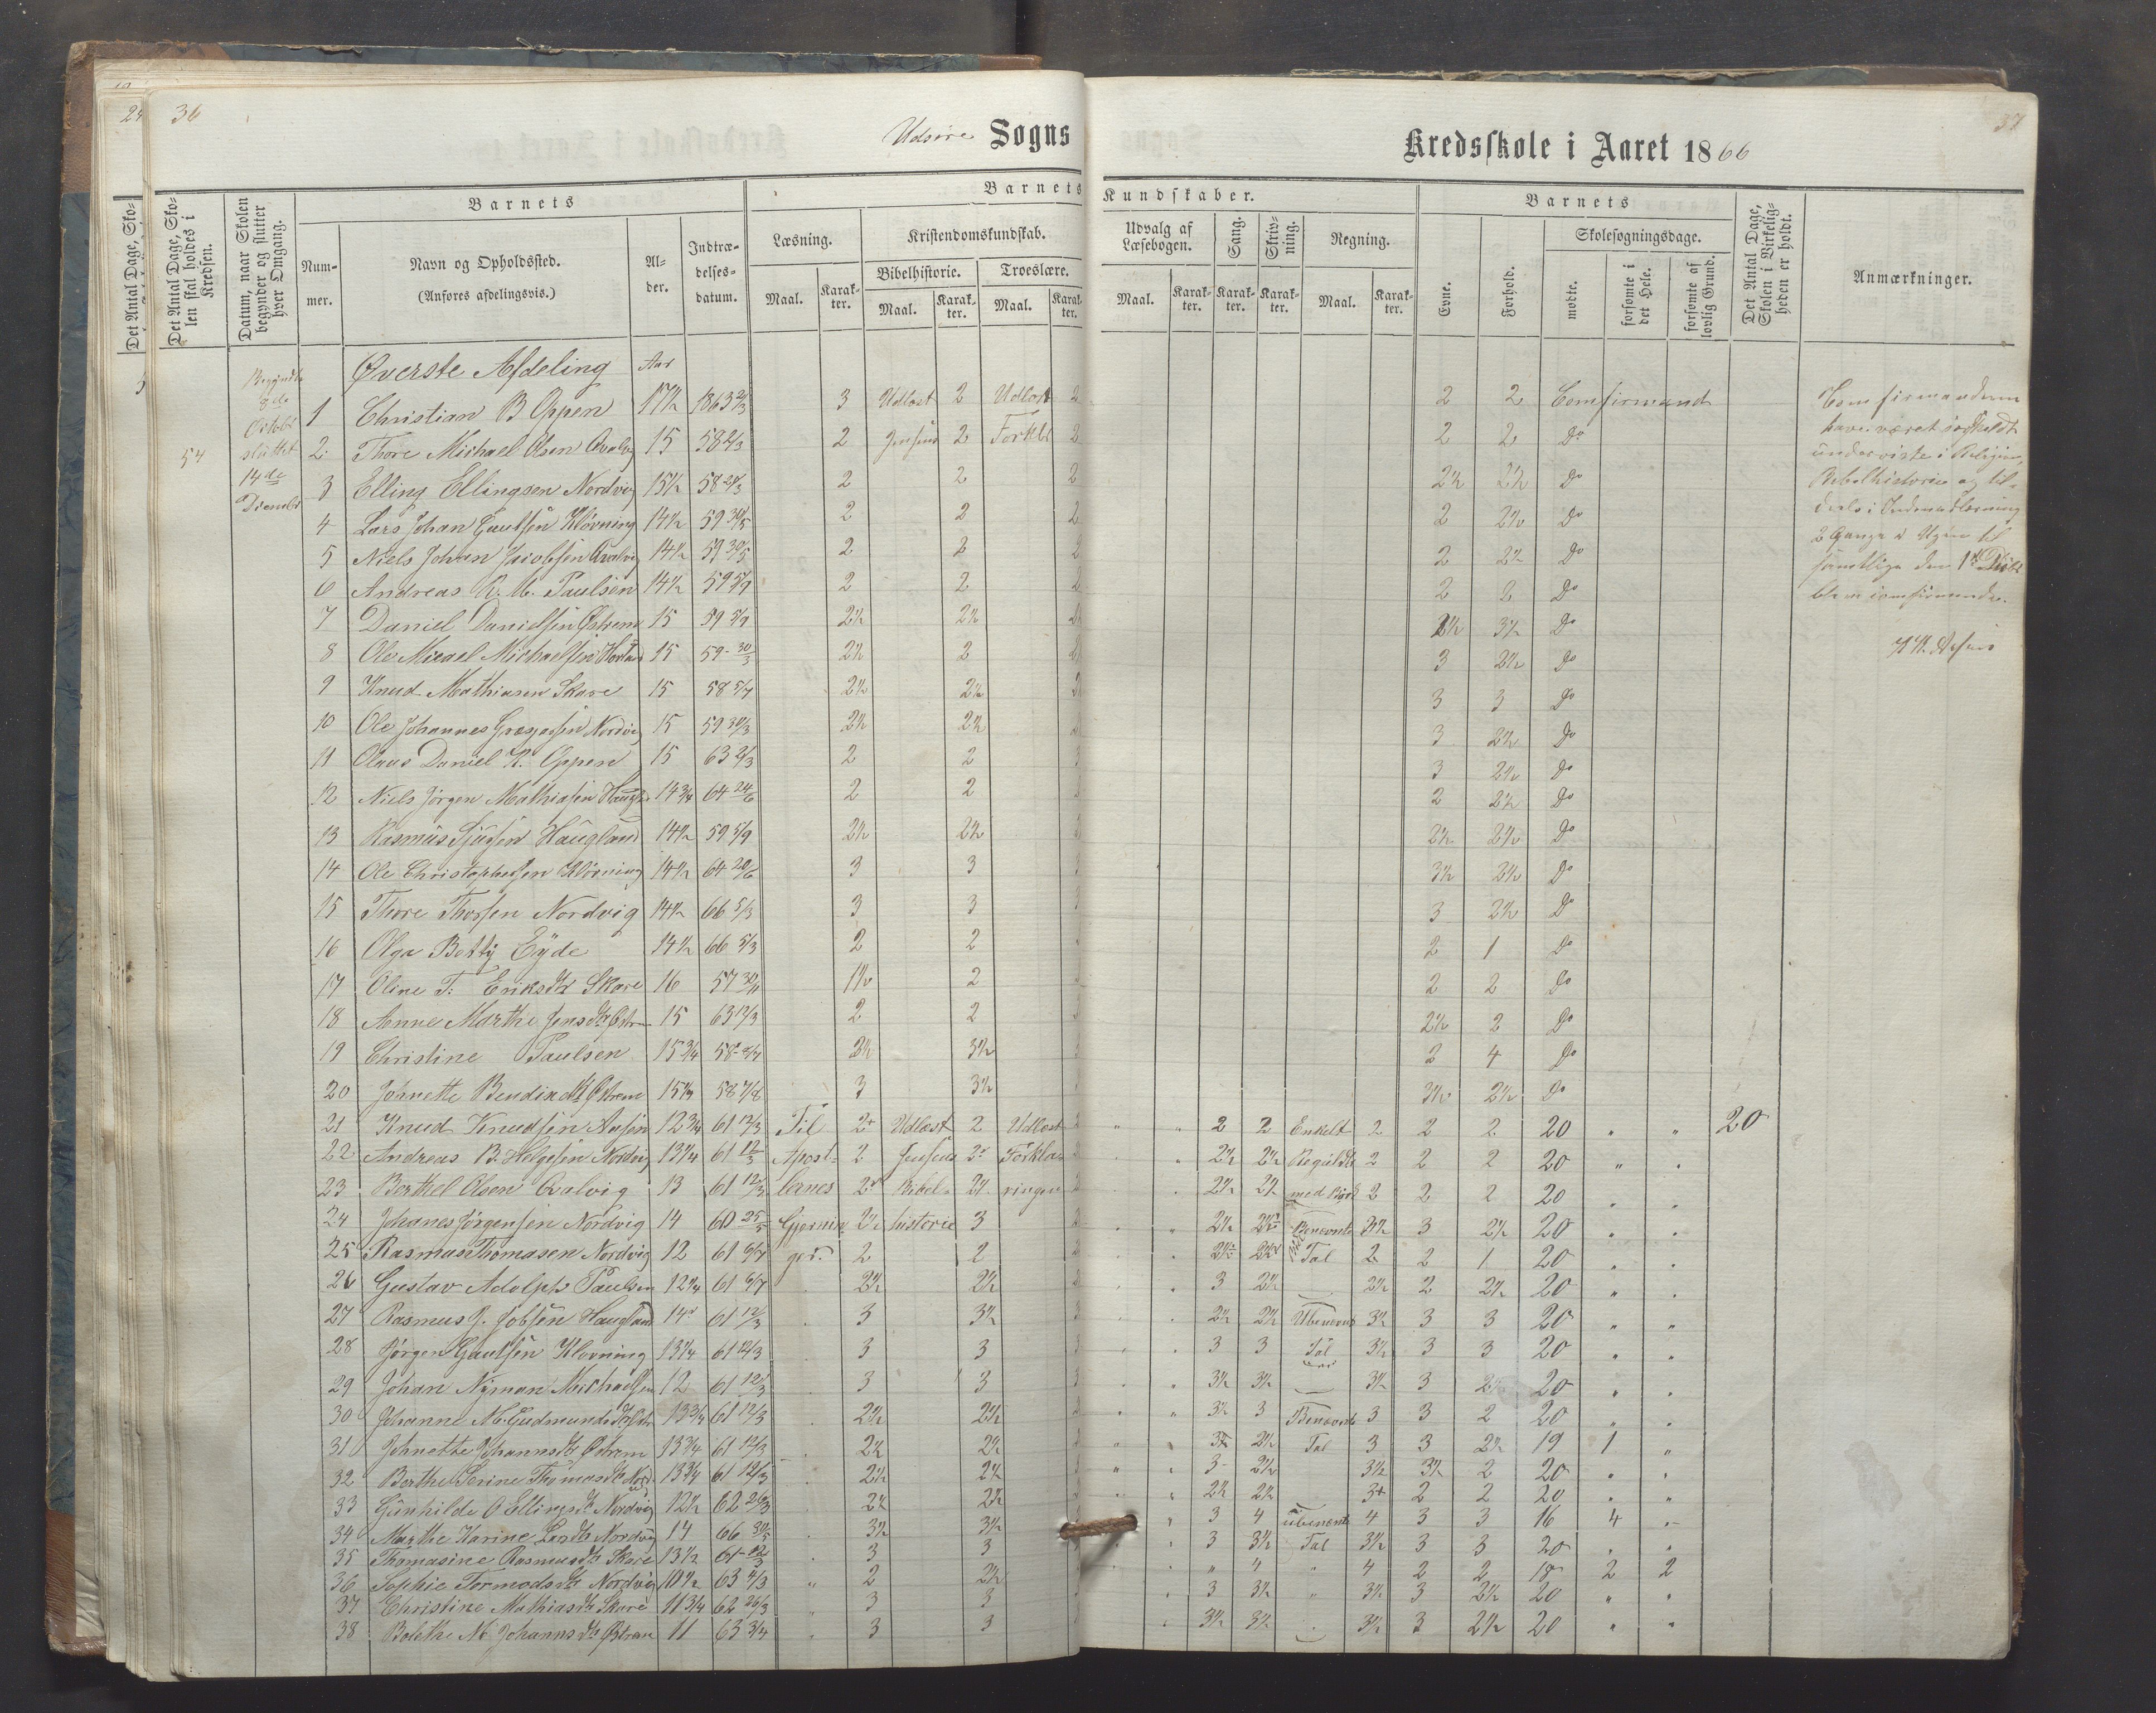 36
37
Udsire Sogns
Kredsskole i Aaret 1866
Det Antal Dage, Skolen skal holdes i Kredsen.
Datum, naar Skolen begynder og slutter hver Omgang.
Barnets
Nummer.
Navn og Opholdssted. (Anføres afdelingsvis.)
Alder.
Indtrædelsesdatum.
Barnets Kundskaber.
Læsning.
Kristendomskundskab.
Bibelhistorie.
Troeslære.
Udvalg af Læsebogen.
Sang.
Skrivning.
Regning.
Maal. Karakter. Maal. Karakter. Maal. Karakter. Maal. Karakter. Karakter. Karakter. Maal. Karakter.
Barnets
Evne.
Forhold.
Skolesøgningsdage.
mødte.
forsømte i det Hele.
forsømte af lovlig Grund.
Det Antal Dage, Skolen i Virkeligheden er holdt.
Anmærkninger.
54
Øverste Afdeling Aar
1 Christian B Oppen 17½ 1863 3 Udlæst 2 Udlæst 2 2 2 Comfirmand
2 Thore Michael Olsen 15 58 2 2 2 2 2 Do
3 Elling Ellingsen Nordvig 15½ 58 2 2 2 2½ 2½ Do
4 Lars Johan Gautsen Kløvning 14½ 59 30/5 2 2 2 2 2½ Do
5 Niels Johan Jacobsen 14½ 59 30/5 2 2 2 2 2½ Do
6 Andreas R. M. Paulsen 14½ 59 5/9 2 2 2 2 2 Do
7 Daniel Danielsen Østrem 15 59 5/9 2½ 2½ 2½ 3½ Do
8 Ole Micael Michaelsen 15 59 30/3 2½ 2 3 2½ Do
9 Knud Mathiasen Skare 15 58 5/7 2½ 2½ 3 3 Do
10 Ole Johannes Nordvig 15 59 30/3 2½ 2½ 3 2½ Do
11 Olaus Daniel K. Oppen 15 63 2/3 2 2 3 2½ Do
12 Niels Jørgen Mathiasen 14¾ 64 24/6 2 2 2 2½ Do
13 Rasmus Haugland 14½ 59 5/9 2½ 2½ 2½ 2½ Do
14 Ole Christophersen Kløvning 14½ 64 20/6 3 3 3½ 2½ Do
15 Thore Thorsen Nordvig 14½ 66 5/3 3 3 3 2½ Do
16 Olga Betty Eyde 14½ 66 5/3 2 2 2 1 Do
17 Oline T. Eriksdtr Skare 16 57 1½ 2 2 2 Do
18 Anne Marthe Jensdtr 15 63 2 2 2½ 2 Do
19 Christine Paulsen 15¾ 58 2½ 3½ 2 4 Do
20 Johnette Østrem 58 7/8 3 3½ 3½ 2½ Do
21 Knud Knudsen 12¾ 61 12/3 Til 2+ Udlæst 2 Udlæst 2 2 2 Enkelt 2 2 2 20 " " 20
22 Andreas B. Helgesen Nordvig 13¼ 61 12/3 Apost- 2 2 Forkla- 2½ 2½ 2 2 2 20 " "
23 Berthel Olsen 13 61 12/3 lernes Bibel- ringen 2½ 2½ med 2 2 2 20
24 Johanes Jørgensen Nordvig 14 60 25/5 Gjernin- 2½ historie 3 2½ 3½ 3 2½ 20
25 Rasmus Thomasen Nordvig 12 61 6/7 ger. 2 2 Tal 2 2 1 20
26 Gustav Adolph Paulsen 12¼ 61 6/7 2½ 2½ 3 2½ 2½ 2 2½ 20
27 Rasmus J. Jobsen Haugland 14 61 12/3 3 3½ 2½ 2½ Ubenævnt 3½ 3 3 20
28 Jørgen Gautsen Klovning 13¼ 61 12/3 3 3 3 3 Tal 3½ 3 3 20
29 Johan Nyman Michaelsen 12 61 12/3 3 3 3½ 3½ 3½ 3 20
30 Johanne M. Gudmundsdtr 13¾ 61 12/3 2½ 2½ 3½ 3 Benævnt 3 3 2 20
31 Johnette Johannsdtr Østrem 13¾ 61 12/3 2½ 2½ 2½ Tal 3 3 2½ 19 1 "
32 Berthe Serine Thomasdtr 13¾ 61 12/3 2½ 2½ 3 2½ 3½ 3½ 2 20
33 Gunhilde O Ellingsdtr Nordvig 12½ 62 26/3 2½ 2½ 2½ 2½ 3+ 2 2 20
34 Marthe Karine Larsdtr Nordvig 14 66 3½ 3½ 3 4 ubenævnte 4 3 3 16 4
35 Thomasine Rasmusdtr Skare 13½ 61 12/3 3 3 3 3½ Tal 3½ 3 3 20
36 Sophie Tormodsdtr Nordvig 10½ 63 4/3 2 2½ " 4 " 4 2 2 18 2 2
37 Christine Mathiasdtr Skare 11¾ 62 26/3 3 3 3 3½ " 3½ 3 2½ 20
38 Bolethe M Johannsdtr 11 63 3 3 3½ 3½ 3½ 3 2½ 20
Comfirmanderne
have været
underviste i Religion,
Bibelhistorie og til-
deels i Indenadlæsning
2 Gange i Ugen til
samtlige den 1ste
bleve comfirmerede.